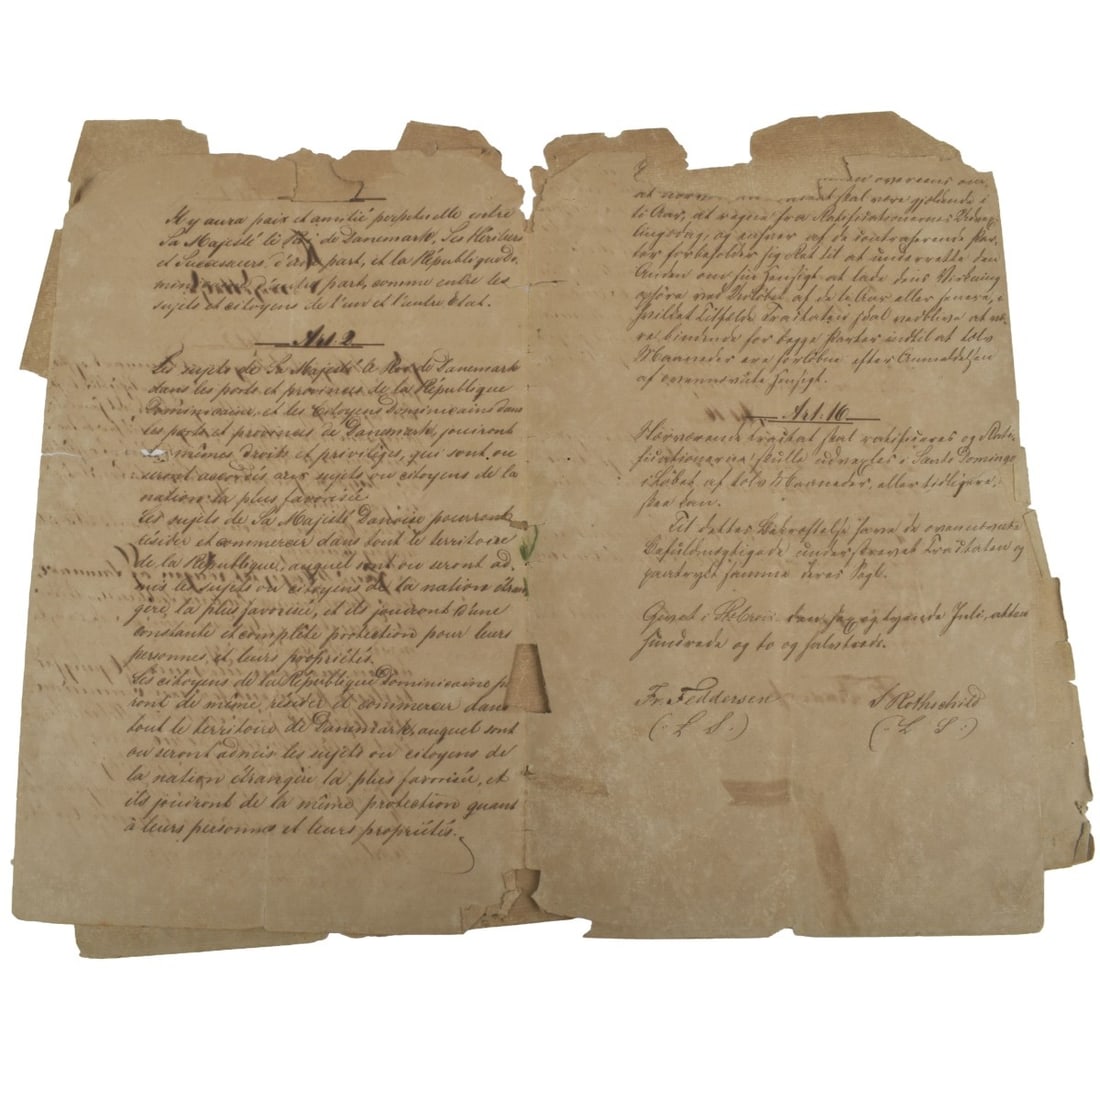 Il y aura paix et amitié perpétuelle entre
Sa Majesté le Roi de Danemark, Ses Héritiers
et Successeurs, d'une part, et la République Do-
minicaine, d'autre part, comme entre les
sujets et citoyens de l'un et l'autre Etat.
Art. 2
Les sujets de Sa Majesté le Roi de Danemark
dans les ports et provinces de la République
Dominicaine, et les Citoyens Dominicains dans
les ports et provinces de Danemark, jouiront
mêmes droits et privilèges, qui sont ou
seront accordés aux sujets ou citoyens de la
nation la plus favorisée
Les sujets de Sa Majesté Danoise pourront
résider et commercer dans tout le territoire
de la République, auquel sont ou seront ad-
mis les sujets ou citoyens de la nation étran
gère la plus favorisée, et ils jouiront d'une
constante et complète protection pour leurs
personnes et leurs propriétés.
Les citoyens de la République Dominicaine
ront de même résider et commercer dans
tout le territoire de Danemark, auquel sont
ou seront admis les sujets ou citoyens de
la nation étrangère la plus favorisée, et
ils jouiront de la même protection quant
à leurs personnes et leurs propriétés.
overeens om,
at skal være gjeldende i
ti Aar, at regne fra Ratificationernes
dag, og enhver af de contraherende Par-
ter forbeholder sig Ret til at underrette den
Anden om sin Hensigt at lade dens Virkning
ophøre ved Udløbet af de ti Aar eller senere, i
hvilket Tilfælde Tractaten skal vedblive at væ-
re bindende for begge Parter indtil at tolv
Maaneder ere forløbne efter Anmeldelsen
af ovennævnte Hensigt.
Art. 16
Nærværende Tractat skal ratificeres og Rati-
ficationerne skulle udvexles i Santo Domingo
i Løbet af tolv Maaneder, eller tidligere,
skee kan.
Til dettes Bekræftelse have de ovennævnte
Befuldmægtigede underskrevet Tractaten og
paatrykt samme deres Segl.
Givet i St Croix den sex og tyvende Juli, atten
hundrede og to og halvtreds.
Fr. Feddersen
Rothschild
(: L S :)
(: L S :)